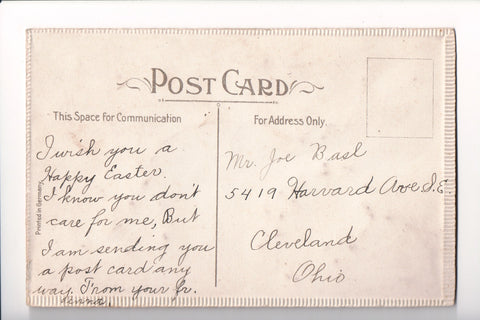 POST CARD
This Space for Communication
For Address Only.
I wish you a
Happy Easter.
I know you don't
care for me, But
I am sending you
a post card any
way. From your fr.
Mr. Joe Basl
5419 Harvard Ave S.E.
Cleveland
Ohio
Printed in Germany